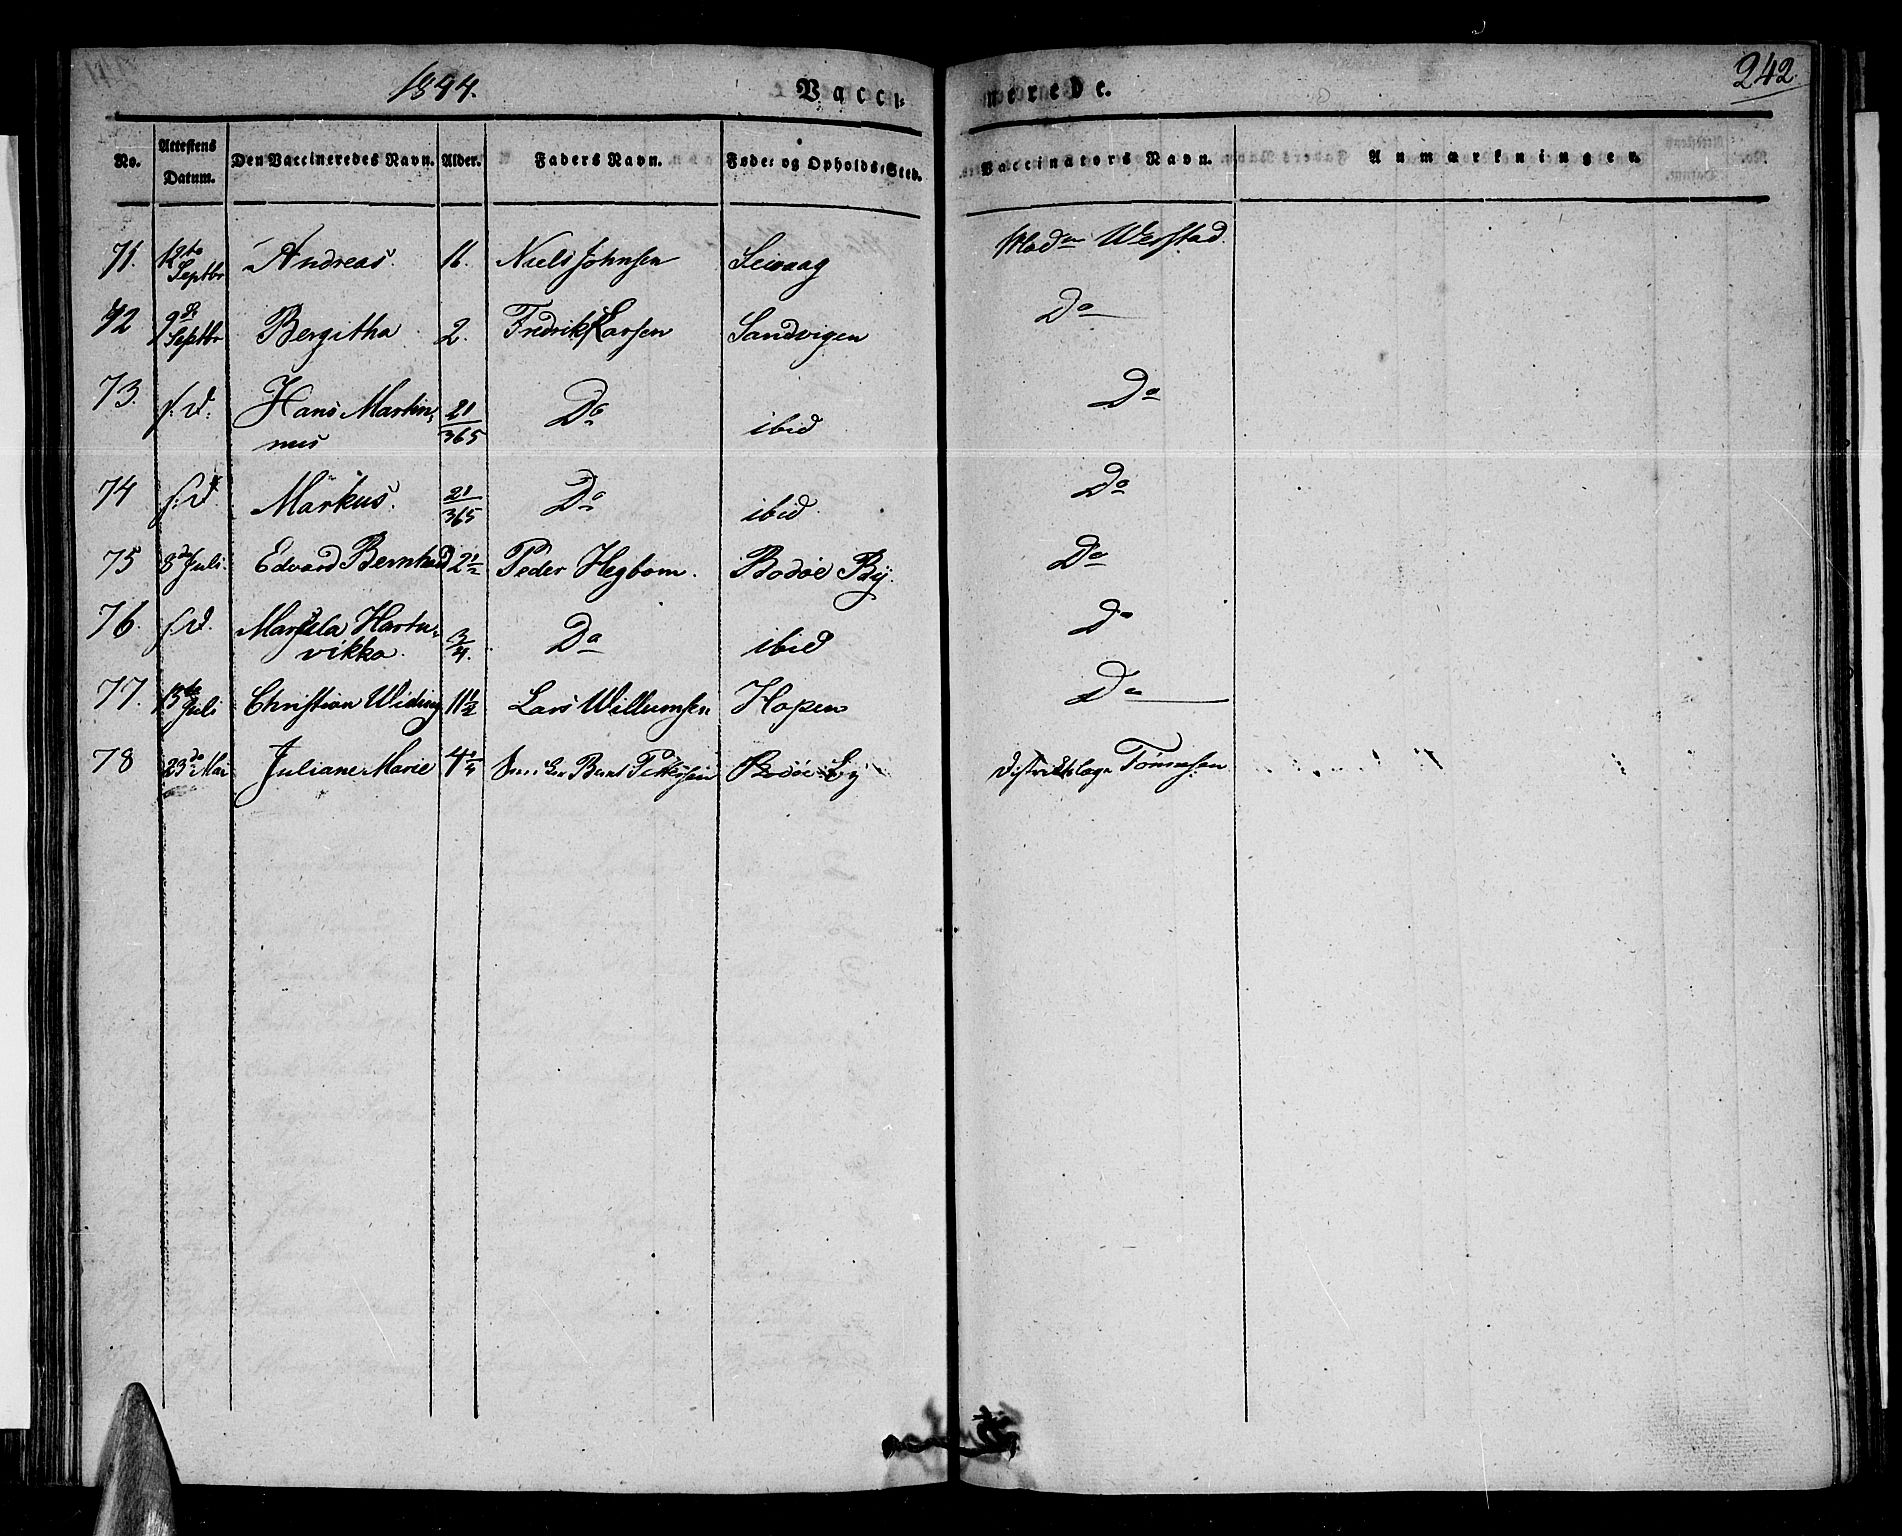 1844. Vacci- nerede. 242.
No. Attestens Datum. Den Vaccineredes Navn. Alder. Faders Navn. Føde: og Opholds-Sted. Vaccinators Navn. Anmærkninger.
71. 12te Septbr Andreas. 11. Niels Johnsen Seivaag Mad Werstad.
72 9de Septbr Bergitha 2. Fredrik Larsen Sandvigen Do
73. s. D. Hans Martin- 21/365 Do ibid Do
nus
74 s. D. Markus. 21/365 Do ibid. Do
75 8de Juli. Edvard Bernhard 2 1/2 Peder Hegbom. Bodøe By. Do
76. s. D. Hartu- 3/4. Do ibid Do
vikka.
77. 15de Juli Christian Widing 11 1/2 Lars Willumsen Hopen Do
78 23de Mai Juliane Marie 4 Bodøe By Distriktslæge Tønnesen